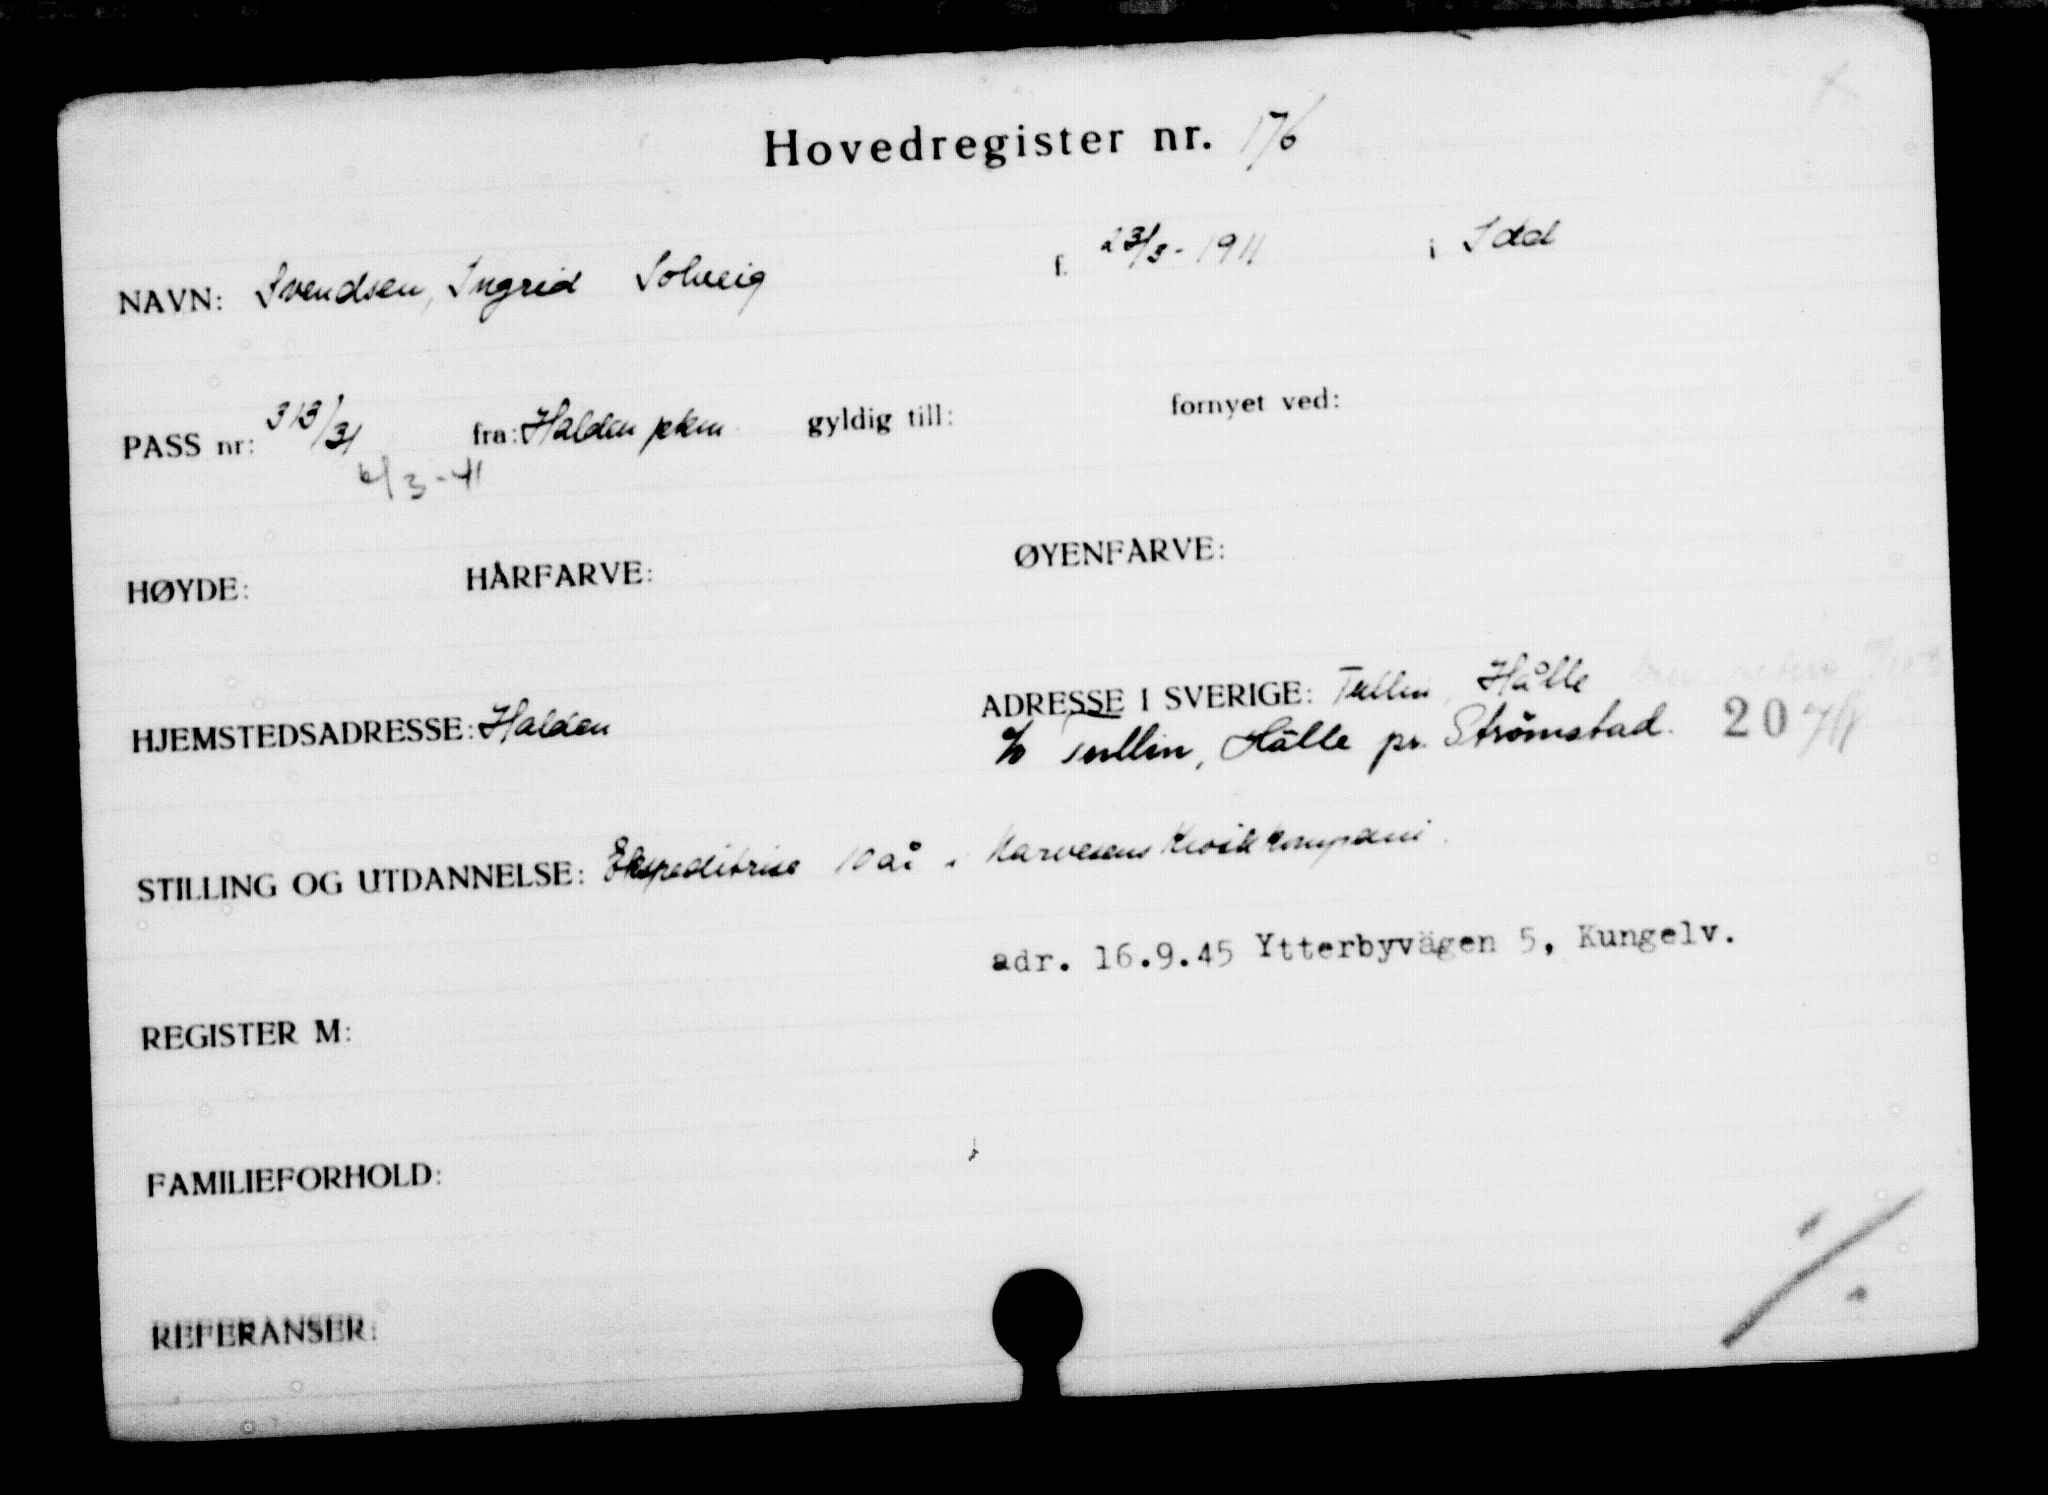 Hovedregister nr. 176
NAVN: Svendsen, Ingrid Solveig f. 23/3-1911 i Idd
PASS nr: 313/31 fra: Halden pkm gyldig till: fornyet ved:
6/3-41
HØYDE: HÅRFARVE: ØYENFARVE:
HJEMSTEDSADRESSE: Halden ADRESSE I SVERIGE: Tullin, Hålle
c/o Tullin, Hälle pr. Strömstad. 20
STILLING OG UTDANNELSE: Ekspeditrise 10 år i Narvesens Kioskkompani.
adr. 16.9.45 Ytterbyvägen 5, Kungelv.
REGISTER M:
FAMILIEFORHOLD:
REFERANSER: